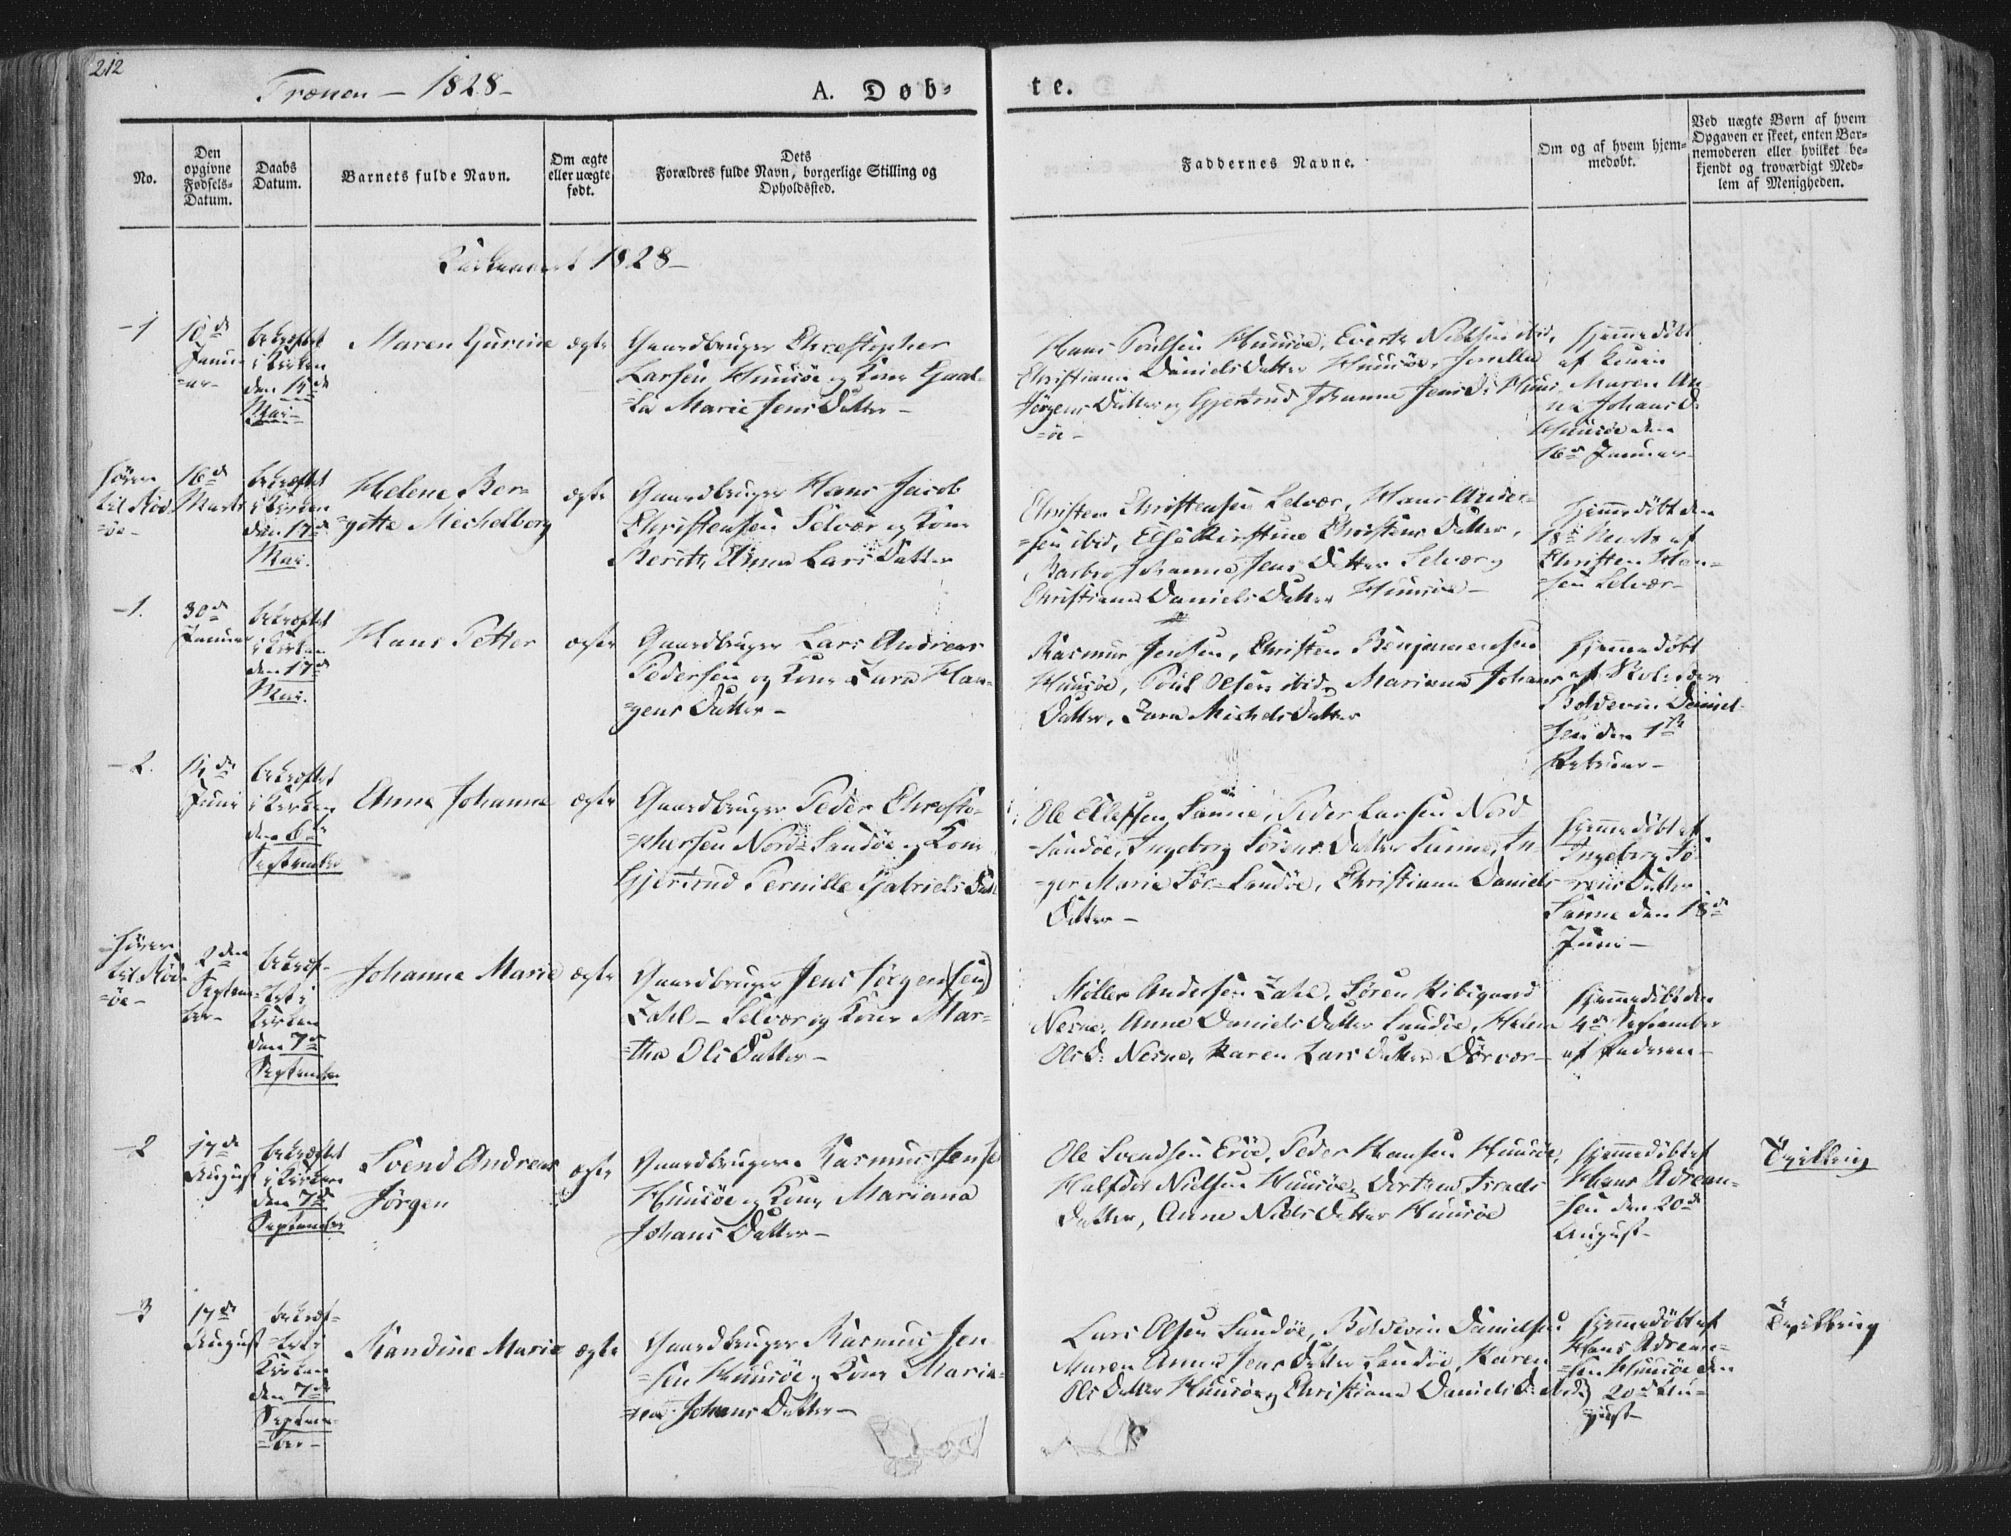 212
Trænen — 1828 —
A. Døb-
te.
No.
Den
opgivne
Fødsels-
Datum.
Daabs
Datum.
Barnets fulde Navn.
Om ægte
eller uægte
født.
Dets
Forældres fulde Navn, borgerlige Stilling og
Opholdssted.
Faddernes Navne.
Om og af hvem hjem-
medøbt.
Ved uægte Børn af hvem
Opgaven er skeet, enten Bar-
nemoderen eller hvilket be-
kjendt og troværdigt Med-
lem af Menigheden.
1828 —
— 1
10de
Janua
=ar —
bekræftet
i Kirken
den
Mai —
Maren Gurine
ægte
Gaardbruger Christopher
Larsen Huusøe og Kone
Marie Jens Datter —
Hans Poulsen Huusøe, Evert Nielsen ibid,
Christiana Daniels Datter Huusøe,
Jørgens Datter og Gjertrud Johanna Jens D: Huus
=øe —
Hjemmedøbt
af
Maren An
na Johans D:
Huusøe den
16de Januar
hører
til Rød
=øe —
16de
Marts
bekræftet
i Kirken
den 17de
Mai.
Helene Ber=
=gitte Mechelborg
ægte
Gaardbruger Hans Jacob
Christensen Selvær og Kone
Berith Anna Lars Datter
Christen Christensen Selvær, Hans Ander=
=sen ibid, Else Kirstine Christens Datter,
Barbro Johanna Jens Datter Selvær og
Christiana Daniels Datter Huusøe —
Hjemmedøbt den
18de Marts af
Christen
=sen Selvær —
— 1.
30de
Januar
bekræftet
i Kirken
den 17de
Mai.
Hans Petter
ægte
Gaardbruger Lars Andreas
Pedersen og Kone Zara Han=
=gens Datter —
Rasmus Jensen, Christen Benjaminsen
Huusøe, Poul Olsen ibid, Mariana Johans
Datter, Zara Michels Datter
Hjemmedøbt
af
Boldevin Daniel=
=sen den 1ste
Februar —
— 2.
Juni
bekræftet
i Kirken
den
September
Anne Johanna
ægte
Gaardbruger Peder Christo=
=phersen Nord=Sandøe og Kone
Gjertrud Pernille Gabriels Dat
Ole Ellefsen Sanne, Peder Larsen Nord
=Sandøe, Ingeborg Sørens Datter Sanne, In=
=ger Marie Sør=Sandøe, Christiana Daniels
Datter —
Hjemmedøbt af
Ingeborg Sø=
=rens Datter
Sanne den 18de
Juni —
hører
til Rød
=øe —
2den
Septem=
ber —
bekræf=
=tet i
Kirken
den 7de
September
Johanna Marie
ægte
Gaardbruger Jens Jørgen(sen)
Zahl — Selvær og Kone Mar=
=tha Ols Datter —
Møller Andersen Zahl, Søren
Nesne, Anne Daniels Datter Sandøe,
Ols D: Nesne, Karen Lars Datter Dørvær —
Hjemmedøbt den
4de September
af Faderen —
— 2
17de
August
bekræftet
i Kirken
den 7de
September
Svend Andreas
Jørgen
ægte
Gaardbruger Rasmus Jense
Huusøe og Kone Mariana
Johans Datter —
Ole Svendsen Erøe, Peder Hansen Huusøe,
Halfdor Nielsen Huusøe,
Datter, Anne Niels Datter Huusøe
Hjemmedøbt af
Hans Adrean=
=sen den 20de
August —
Tvilling
— 3
17de
August
bekræf=
=tet i
Kirken
den 7de
Septem=
=ber —
Randine Marie
ægte
Gaardbruger Rasmus Jen
=sen Huusøe og Kone Maria=
=na Johans Datter —
Lars Olsen Sandøe, Boldevin Danielsen
Maren Anna Jens Datter Sandøe, Karen
Ols Datter Huusøe og Christiana Daniels D: ibid
Hjemmedøbt af
Hans Adrean=
=sen Huusøe den
20de Au=
=gust —
Tvilling